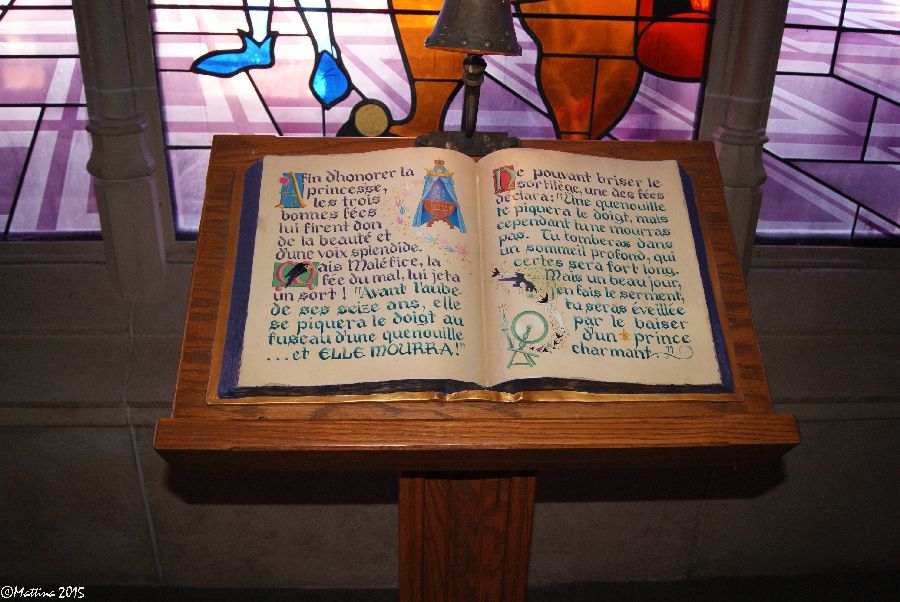 Afin d'honorer la
princesse,
les trois
bonnes fées
lui firent don
de la beauté et
d'une voix splendide.
Mais Maléfice, la
fée du mal, lui jeta
un sort! "Avant l'aube
de ses seize ans, elle
se piquera le doigt au
fuseau d'une quenouille
...et ELLE MOURRA!"
Ne pouvant briser le
sortilège, une des fées
déclara: "Une quenouille
te piquera le doigt, mais
cependant tu ne mourras
pas. Tu tomberas dans
un sommeil profond, qui
certes sera fort long.
Mais un beau jour,
j'en fais le serment,
tu seras éveillée
par le baiser
d'un prince
charmant
©Mattina 2015